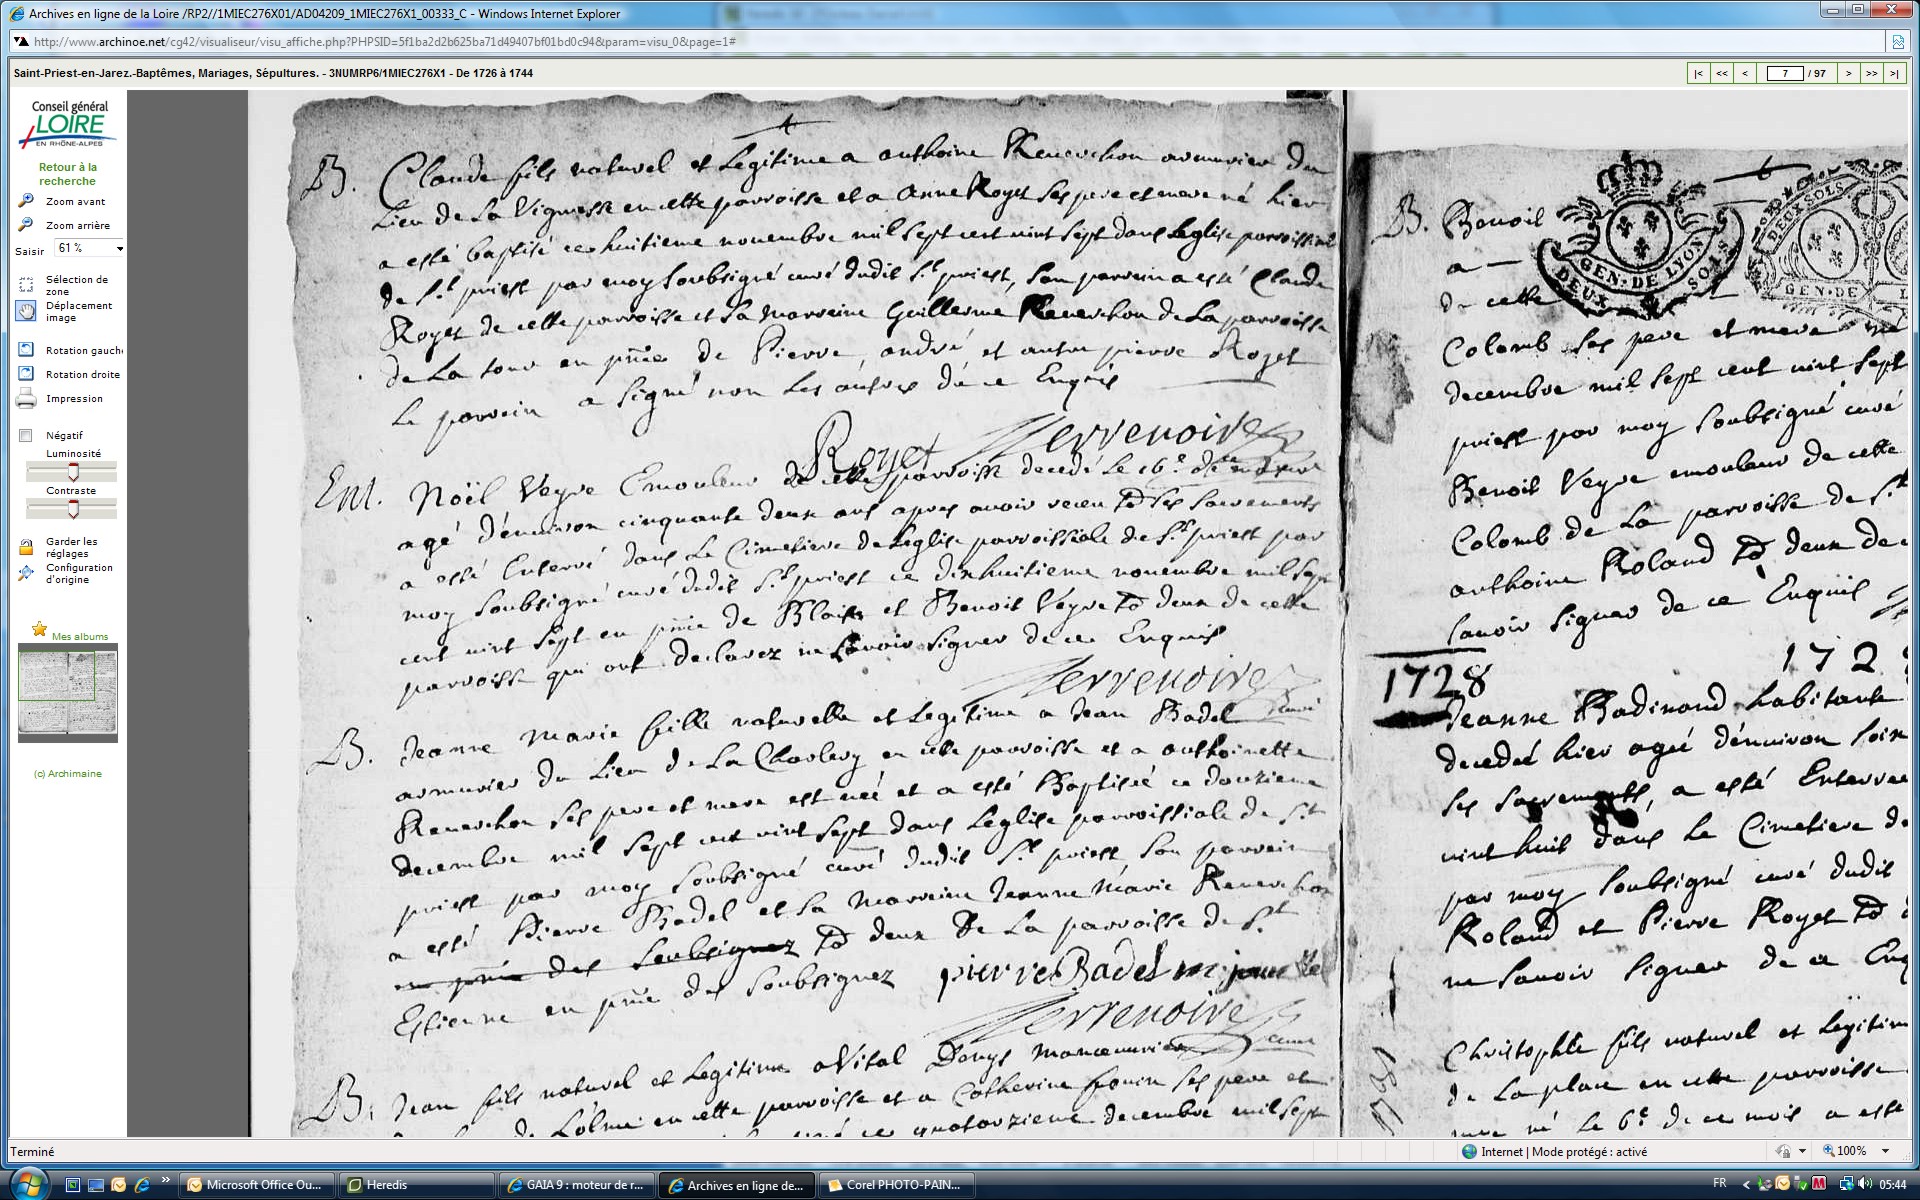 Archives en ligne de la Loire /RP2//1MIEC276X01/AD04209_1MIEC276X1_00333_C - Windows Internet Explorer
http://www.archinoe.net/cg42/visualiseur/visu_affiche.php?PHPSID=5f1ba2d2b625ba71d49407bf01bd0c94&param=visu_0&page=1#
Saint-Priest-en-Jarez.-Baptêmes, Mariages, Sépultures. - 3NUMRP6/1MIEC276X1 - De 1726 à 1744
|< << < 7 / 97 > >> >|
Conseil général
LOIRE
EN RHÔNE-ALPES
Retour à la
recherche
Zoom avant
Zoom arrière
Saisir 61 %
Sélection de
zone
Déplacement
image
Rotation gauch
Rotation droite
Impression
Négatif
Luminosité
Contraste
Garder les
réglages
Configuration
d'origine
Mes albums
(c) Archimaine
B. Claude fils naturel et Legitime a anthoine Reuerchon armurier du
Lieu de La Vignasse en cette parroisse et a Anne Royet ses pere et mere né hier
a esté baptisé ce huitieme novembre mil sept cent vint sept dans Leglise parroissiale
de St priest par moy soubsigné curé dudit St priest, son parrein a esté Claude
Royet de cette parroisse et sa marreine Guillerme Reuerchon de La parroisse
de La tour en pnce de Pierre, andré, et autre pierre Royet
Le parrein a signé non Les autres de ce Enquis
Royet Terrenoire
Ent. Noël Veyre Emouleur de cette parroisse decedé Le 16e de ce mois
agé d'enuiron cinquante deux ans apres avoir receu to ses sacrements
a esté Enterré dans Le Cimetiere de Leglise parroissiale de St priest par
moy soubsigné curé dudit St priest ce dixhuitieme novembre mil sept
cent vint sept en pnce de Blaise et Benoit Veyre to deux de cette
parroisse qui ont declarez ne savoir signer de ce Enquis
Terrenoire
B. Jeanne Marie fille naturelle et Legitime a Jean Badel
armurier du Lieu de La Charlery en cette parroisse et a anthoinette
Reuerchon ses pere et mere est née et a esté Baptisée ce douzieme
decembre mil sept cent vint sept dans Leglise parroissiale de St
priest par moy soubsigné curé dudit St priest son parrein
a esté Pierre Badel et sa marreine Jeanne Marie Reuerchon
en pnce des soubsignez to deux de La parroisse de St
Estienne en pnce des soubsignez pierre Badel
Terrenoire
B. Jean fils naturel et Legitime a Vital Denys manœuvrier
de Lolme en cette parroisse et a Catherine ses pere et
ce quatorzieme decembre mil sept
6
GEN·DE LYON
DEUX SOLS
DEUX SOLS
GEN·DE L
B. Benoit
a
de cette
Colomb ses pere et mere né
decembre mil sept cent vint sept
priest par moy soubsigné curé
Benoit Veyre emouleur de cette
Colomb de La parroisse de St
anthoine Roland to deux de
savoir signer de ce Enquis
1728 172
Jeanne Badinand habitante
decedée hier agée d'enuiron soix
ses sacrements, a esté Enterrée
vint huit dans Le Cimetiere de
par moy soubsigné curé dudit
Roland et Pierre Royet to
ne savoir signer de ce Enq
Christophle fils naturel et Legitim
de La place en cette parroisse
né Le 6e de ce mois a esté
Terminé
Internet | Mode protégé : activé
100%
Microsoft Office Ou...
Heredis
GAIA 9 : moteur de r...
Archives en ligne de...
Corel PHOTO-PAIN...
FR
05:44